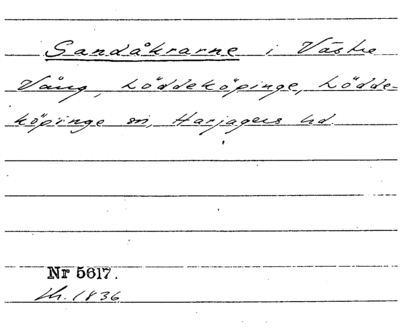 Sandåkrarne i Västre
Vång, Löddeköpinge, Lödde-
köpinge sn, Harjagers hd.
Nr 5617.
1836